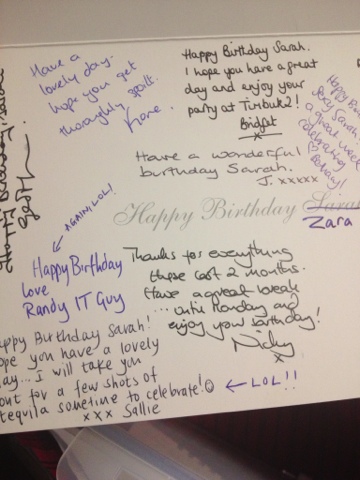 Have a
lovely day.
hope you get
thoroughly spoilt.
Happy Birthday Sarah.
I hope you have a great
day and enjoy your
party at Timbuk2!
Bridget
x
Have a wonderful
birthday Sarah.
J. xxxxx
a great week
celebrating
Happy Birthday Sarah
Zara
AGAIN, LOL!
Happy Birthday
love
Randy IT Guy
Thanks for everything
these last 2 months.
Have a great week
... until Monday and
enjoy your birthday!
Nicky
x
appy Birthday Sarah!
ope you have a lovely
ay... I will take you
out for a few shots of
tequila sometime to celebrate!☺
xxx Sallie
← LOL!!